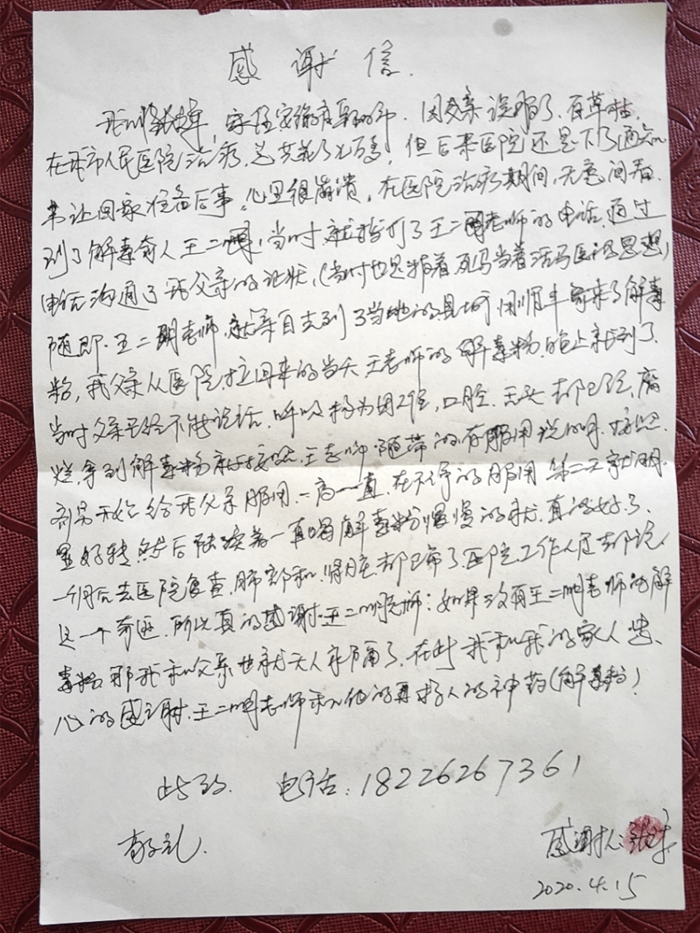 感谢信
我叫张 ,家住安徽 ,因父亲误服了百草枯,
在 市人民医院治疗,总共花了 万多,但后来医院还是下了通知
书让回家准备后事,心里很崩溃,在医院治疗期间,无意间看
到了解毒奇人王二明,当时就拨打了王二明老师的电话,通过
电话沟通了我父亲的症状,(当时也是抱着死马当着活马医的思想)
随即王二明老师,就亲自去到了当地的县城用顺丰寄来了解毒
粉,我父亲从医院拉回来的当天王老师的解毒粉,晚上就到了
当时父亲已经不能说话,呼吸极为困难,口腔、舌头都已经腐
烂,拿到解毒粉就按照王老师随带的有服用说明,
就开始给我父亲服用,一直在不停的服用第二天就明
显好转,然后陆续着一直喝解毒粉慢慢的就真的好了
一个月后去医院复查,肺部和肾脏都正常了医院工作人员都说
这一个奇迹,所以真的感谢王二明老师:如果没有王二明老师的解
毒粉那我和父亲也就天人 了,在此我和我的家人
心的感谢王二明老师和他的 人的神药(解毒粉)
此致 电话:18226267361
敬礼
感谢人:张
2020.4.15